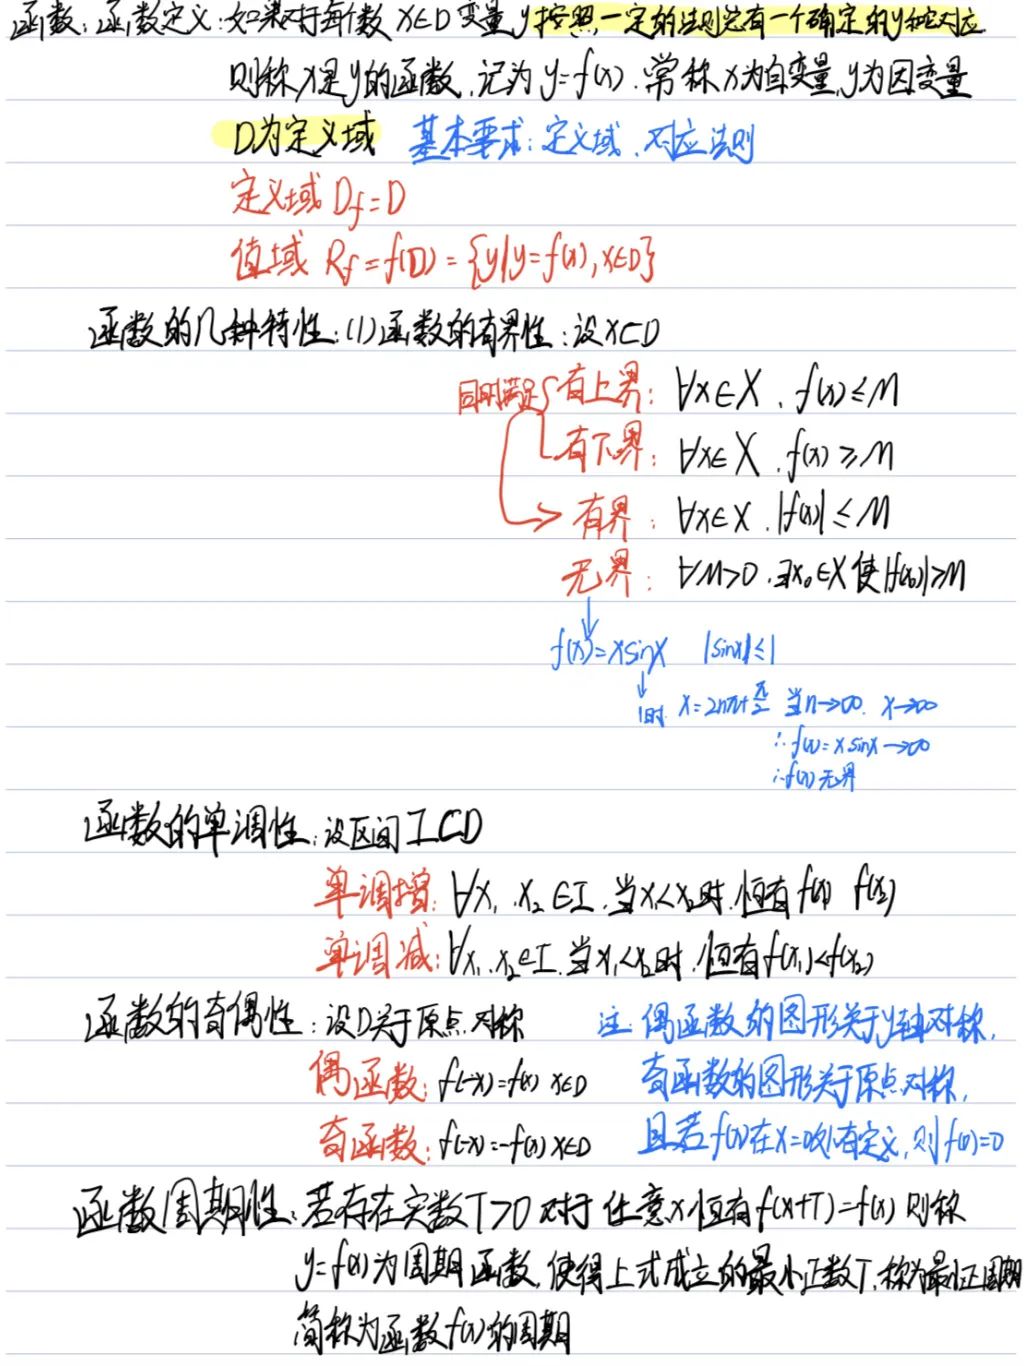 函数: 函数定义: 如果对于每个数 x∈D 变量 y 按照一定的法则总有一个确定的y和它对应
则称 x是 y的函数, 记为 y=f(x). 常称 x为自变量, y为因变量
D为定义域 基本要求: 定义域、对应法则
定义域 Df=D
值域 Rf=f(D)={y|y=f(x),x∈D}
函数的几种特性: (1)函数的有界性: 设X⊂D
同时满足 { 有上界: ∀x∈X, f(x)≤M
有下界: ∀x∈X, f(x)≥M
有界: ∀x∈X, |f(x)|≤M
无界: ∀M>0, ∃x₀∈X 使|f(x₀)|>M
f(x)=xsinx |sinx|≤1
1时 x=2nπ+π/2 当n→∞, x→∞
∴f(x)=xsinx→∞
∴f(x)无界
函数的单调性: 设区间I⊂D
单调增: ∀x₁,x₂∈I, 当x₁<x₂时,恒有 f(x) f(x₂)
单调减: ∀x₁,x₂∈I, 当x₁<x₂时,恒有f(x₁)<f(x₂)
函数的奇偶性: 设D关于原点对称 注: 偶函数的图形关于y轴对称,
偶函数: f(-x)=f(x) x∈D 奇函数的图形关于原点对称,
奇函数: f(-x)=-f(x) x∈D 且若f(x)在x=0处有定义, 则f(0)=0
函数周期性: 若存在实数T>0 对于任意x恒有f(x+T)=f(x) 则称
y=f(x)为周期函数, 使得上式成立的最小正数T, 称为最小正周期
简称为函数f(x)的周期